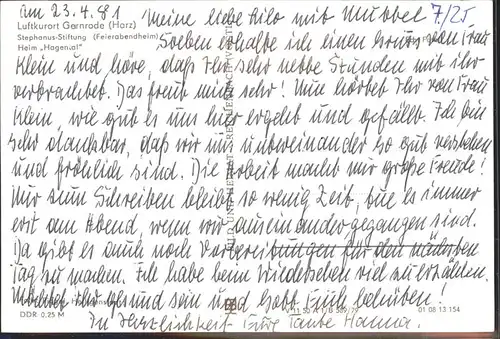 am 23.4.81 Meine liebe Hilo mit Muttel 7/25
Luftkurort Gernrode (Harz)
Stephanus-Stiftung (Feierabendheim)
Heim „Hagental"
Soeben erhalte ich einen Gruss von Frau
Klein und höre, daß Ihr sehr nette Stunden mit ihr
verbrachtet. Das freut mich sehr! Nun hörtet Ihr von Frau
Klein, wie gut es uns hier ergeht und gefällt. Ich bin
sehr dankbar, daß wir uns untereinander so gut verstehen
und fröhlich sind. Die Arbeit macht mir große Freude!
Nur zum Schreiben bleibt so wenig Zeit, tue es immer
erst am Abend, wenn wir auseinandergegangen sind.
Da gibt es auch noch Vorbereitungen für den nächsten
Tag zu machen. Ich habe beim Wiedersehen viel zu erzählen.
Möchtet Ihr gesund sein und Gott Euch behüten!
DDR 0,25 M
01 08 13 154
In Herzlichkeit Eure Tante Hanna.